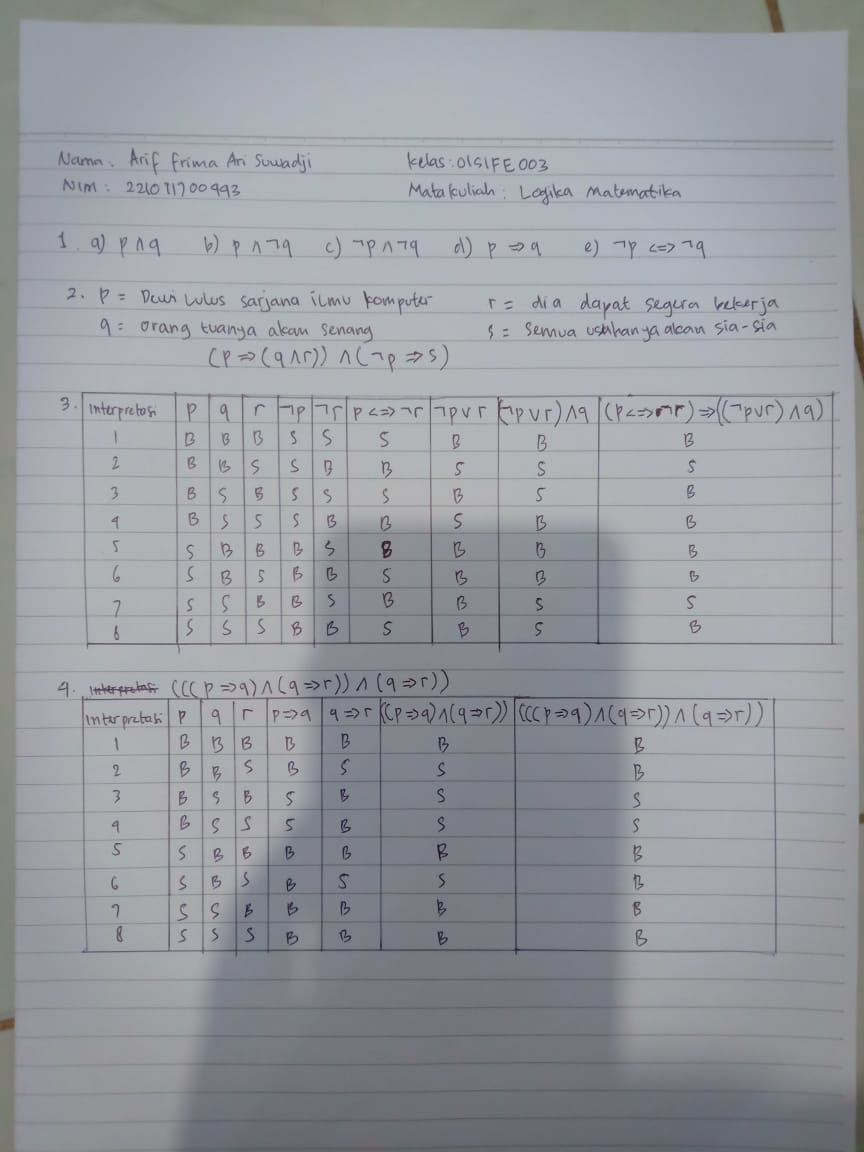 Nama : Arif Frima Ari Suwadji Kelas : 01SIFE003
NIM : 221071700493 Mata kuliah : Logika Matematika
1. a) p ∧ q b) p ∧ ¬q c) ¬p ∧ ¬q d) p => q e) ¬p <=> ¬q
2. p = Dewi Lulus sarjana ilmu komputer r = dia dapat segera bekerja
q = orang tuanya akan senang s = Semua usahanya akan sia-sia
(p => (q ∧ r)) ∧ (¬p => s)
3. Interpretasi p q r ¬p ¬r p <=> ¬r ¬p ∨ r (¬p ∨ r) ∧ q (p <=> ¬r) => ((¬p ∨ r) ∧ q)
1 B B B S S S B B B
2 B B S S B B S S S
3 B S B S S S B S B
4 B S S S B B S B B
5 S B B B S B B B B
6 S B S B B S B B B
7 S S B B S B B S S
8 S S S B B S B S B
4. Interpretasi (((p => q) ∧ (q => r)) ∧ (q => r))
Interpretasi p q r p => q q => r ((p => q) ∧ (q => r)) (((p => q) ∧ (q => r)) ∧ (q => r))
1 B B B B B B B
2 B B S B S S B
3 B S B S B S S
4 B S S S B S S
5 S B B B B B B
6 S B S B S S B
7 S S B B B B B
8 S S S B B B B